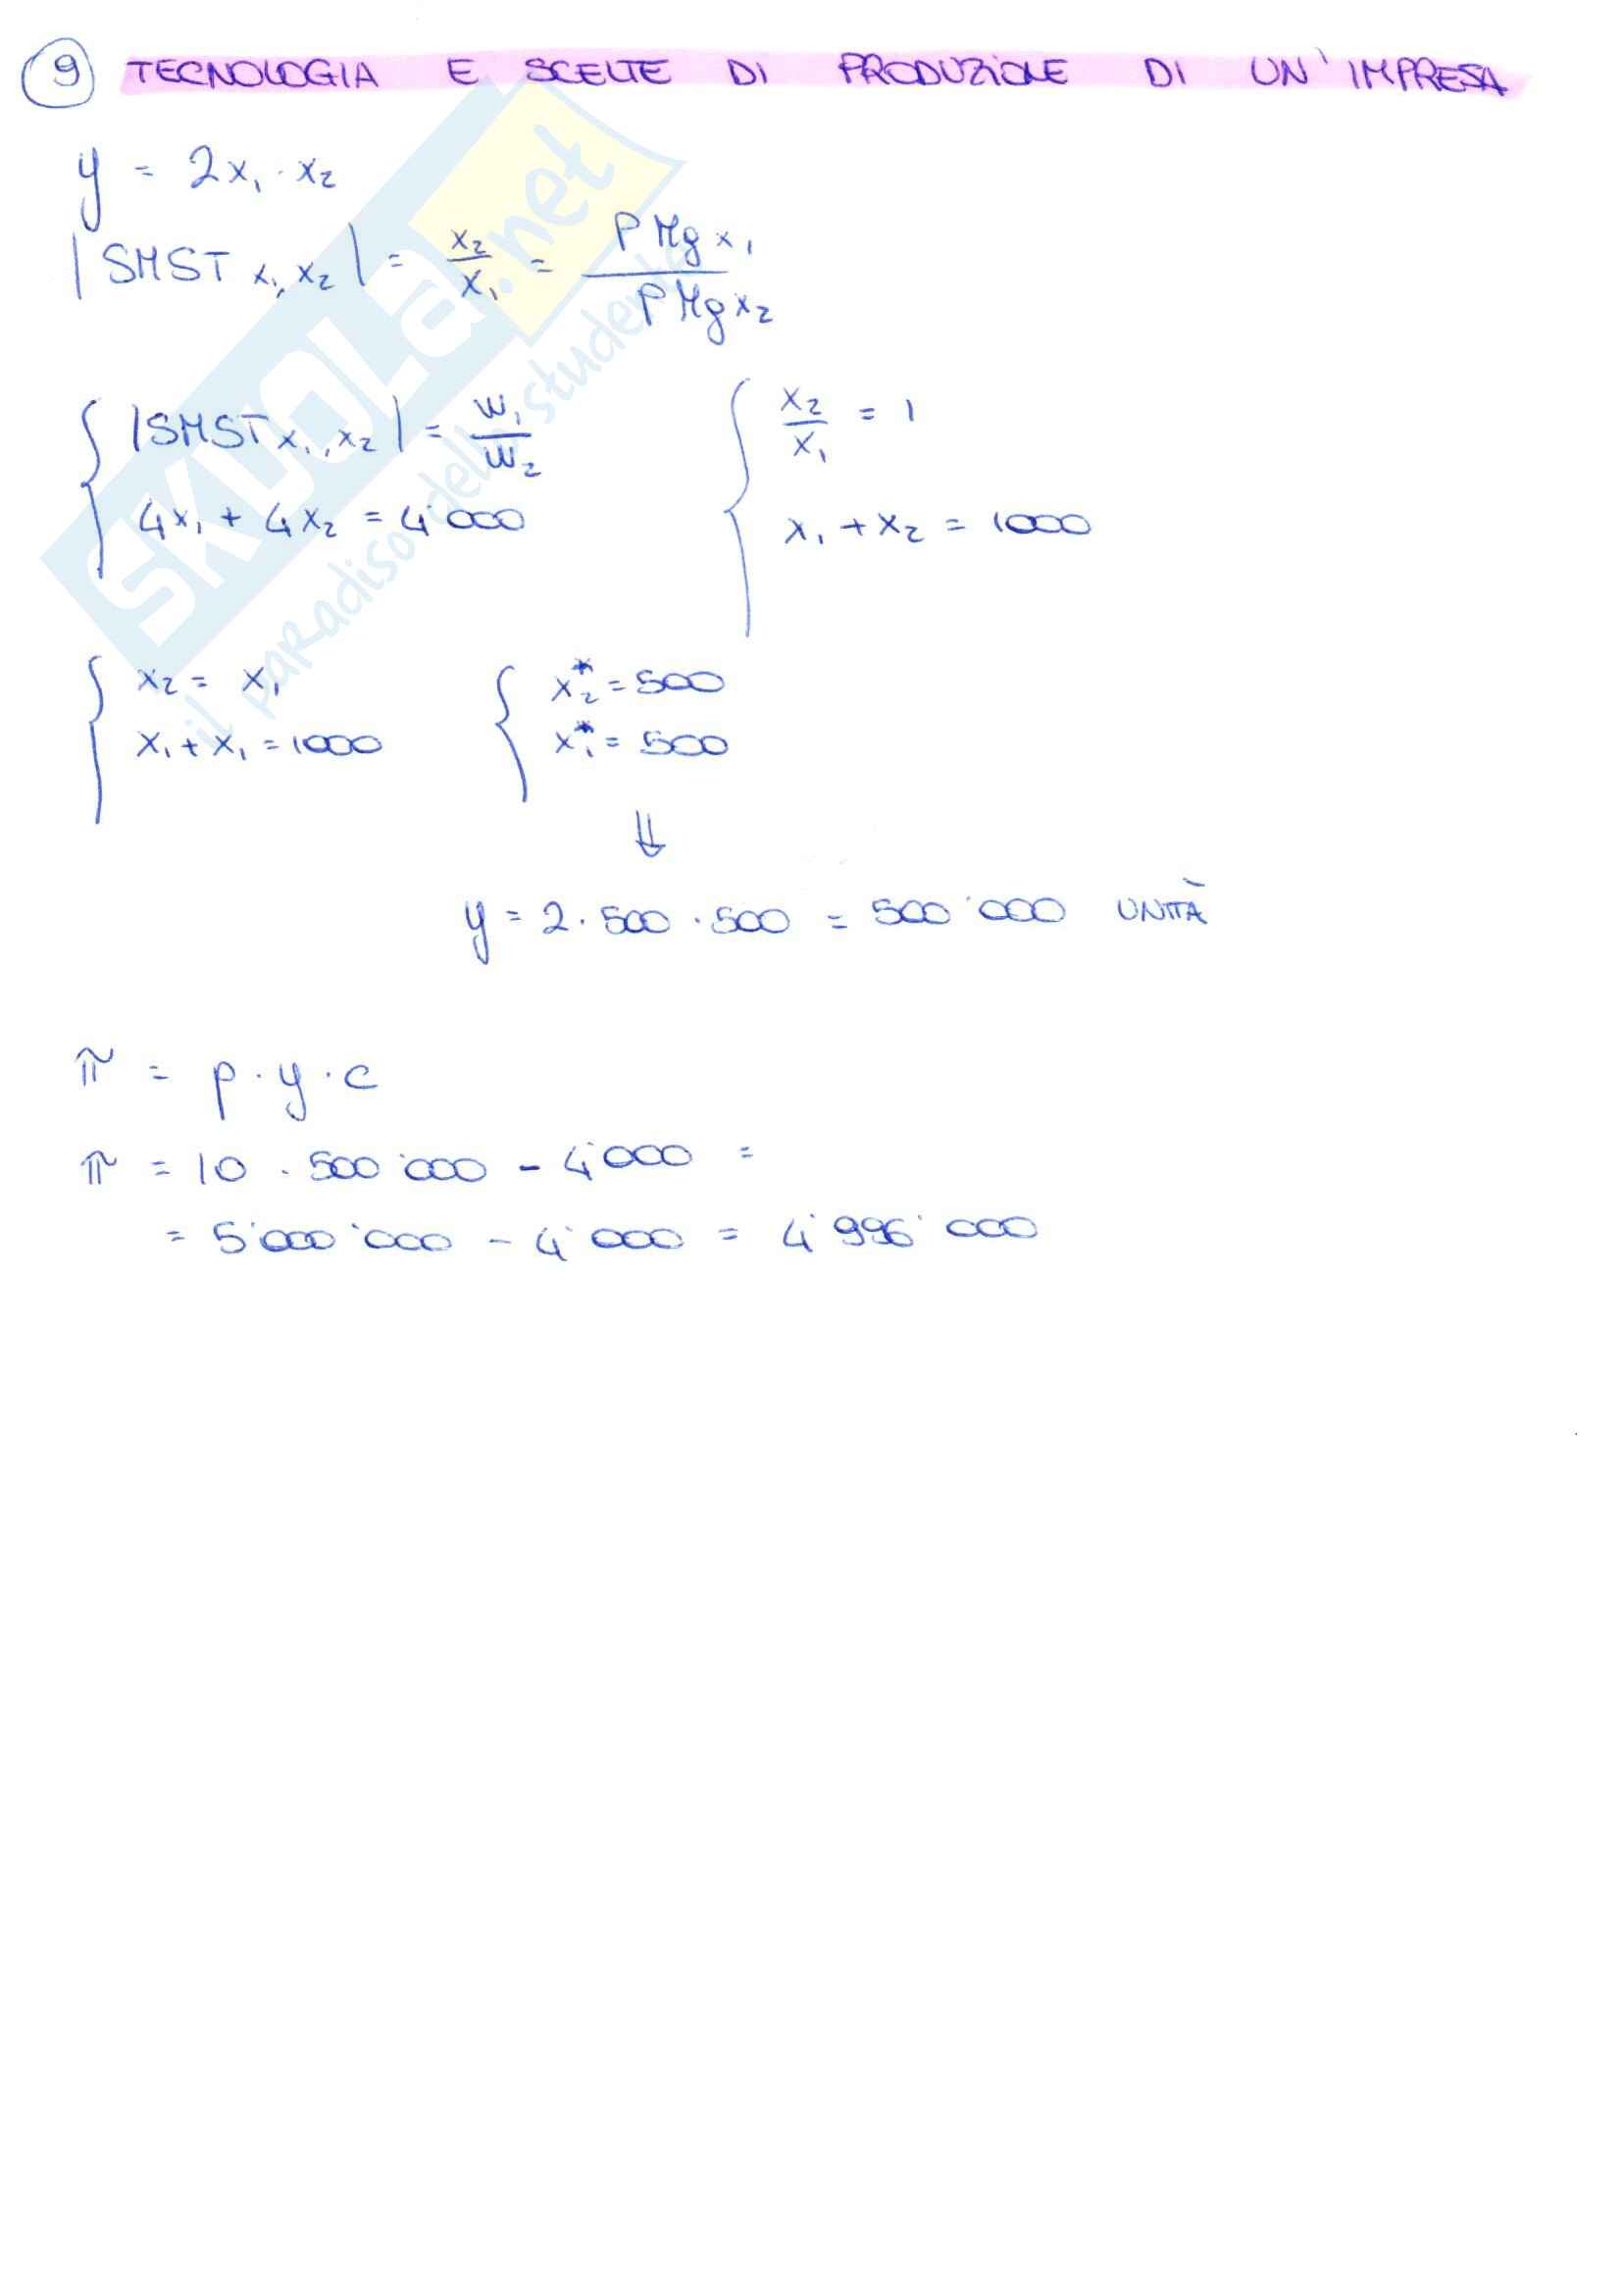 9 TECNOLOGIA E SCELTE DI PRODUZIONE DI UN'IMPRESA
y = 2x₁ · x₂
|SMST x₁, x₂| = x₂/x₁ = PMg x₁ / PMg x₂
{ |SMST x₁, x₂| = w₁/w₂
4x₁ + 4x₂ = 4'000
{ x₂/x₁ = 1
x₁ + x₂ = 1000
{ x₂ = x₁
x₁ + x₁ = 1000
{ x₂* = 500
x₁* = 500
⇓
y = 2 · 500 · 500 = 500'000 UNITÀ
π = p · y · c
π = 10 · 500'000 - 4'000 =
= 5'000'000 - 4'000 = 4'996'000
SKUOLA.net
il paradiso dello studente